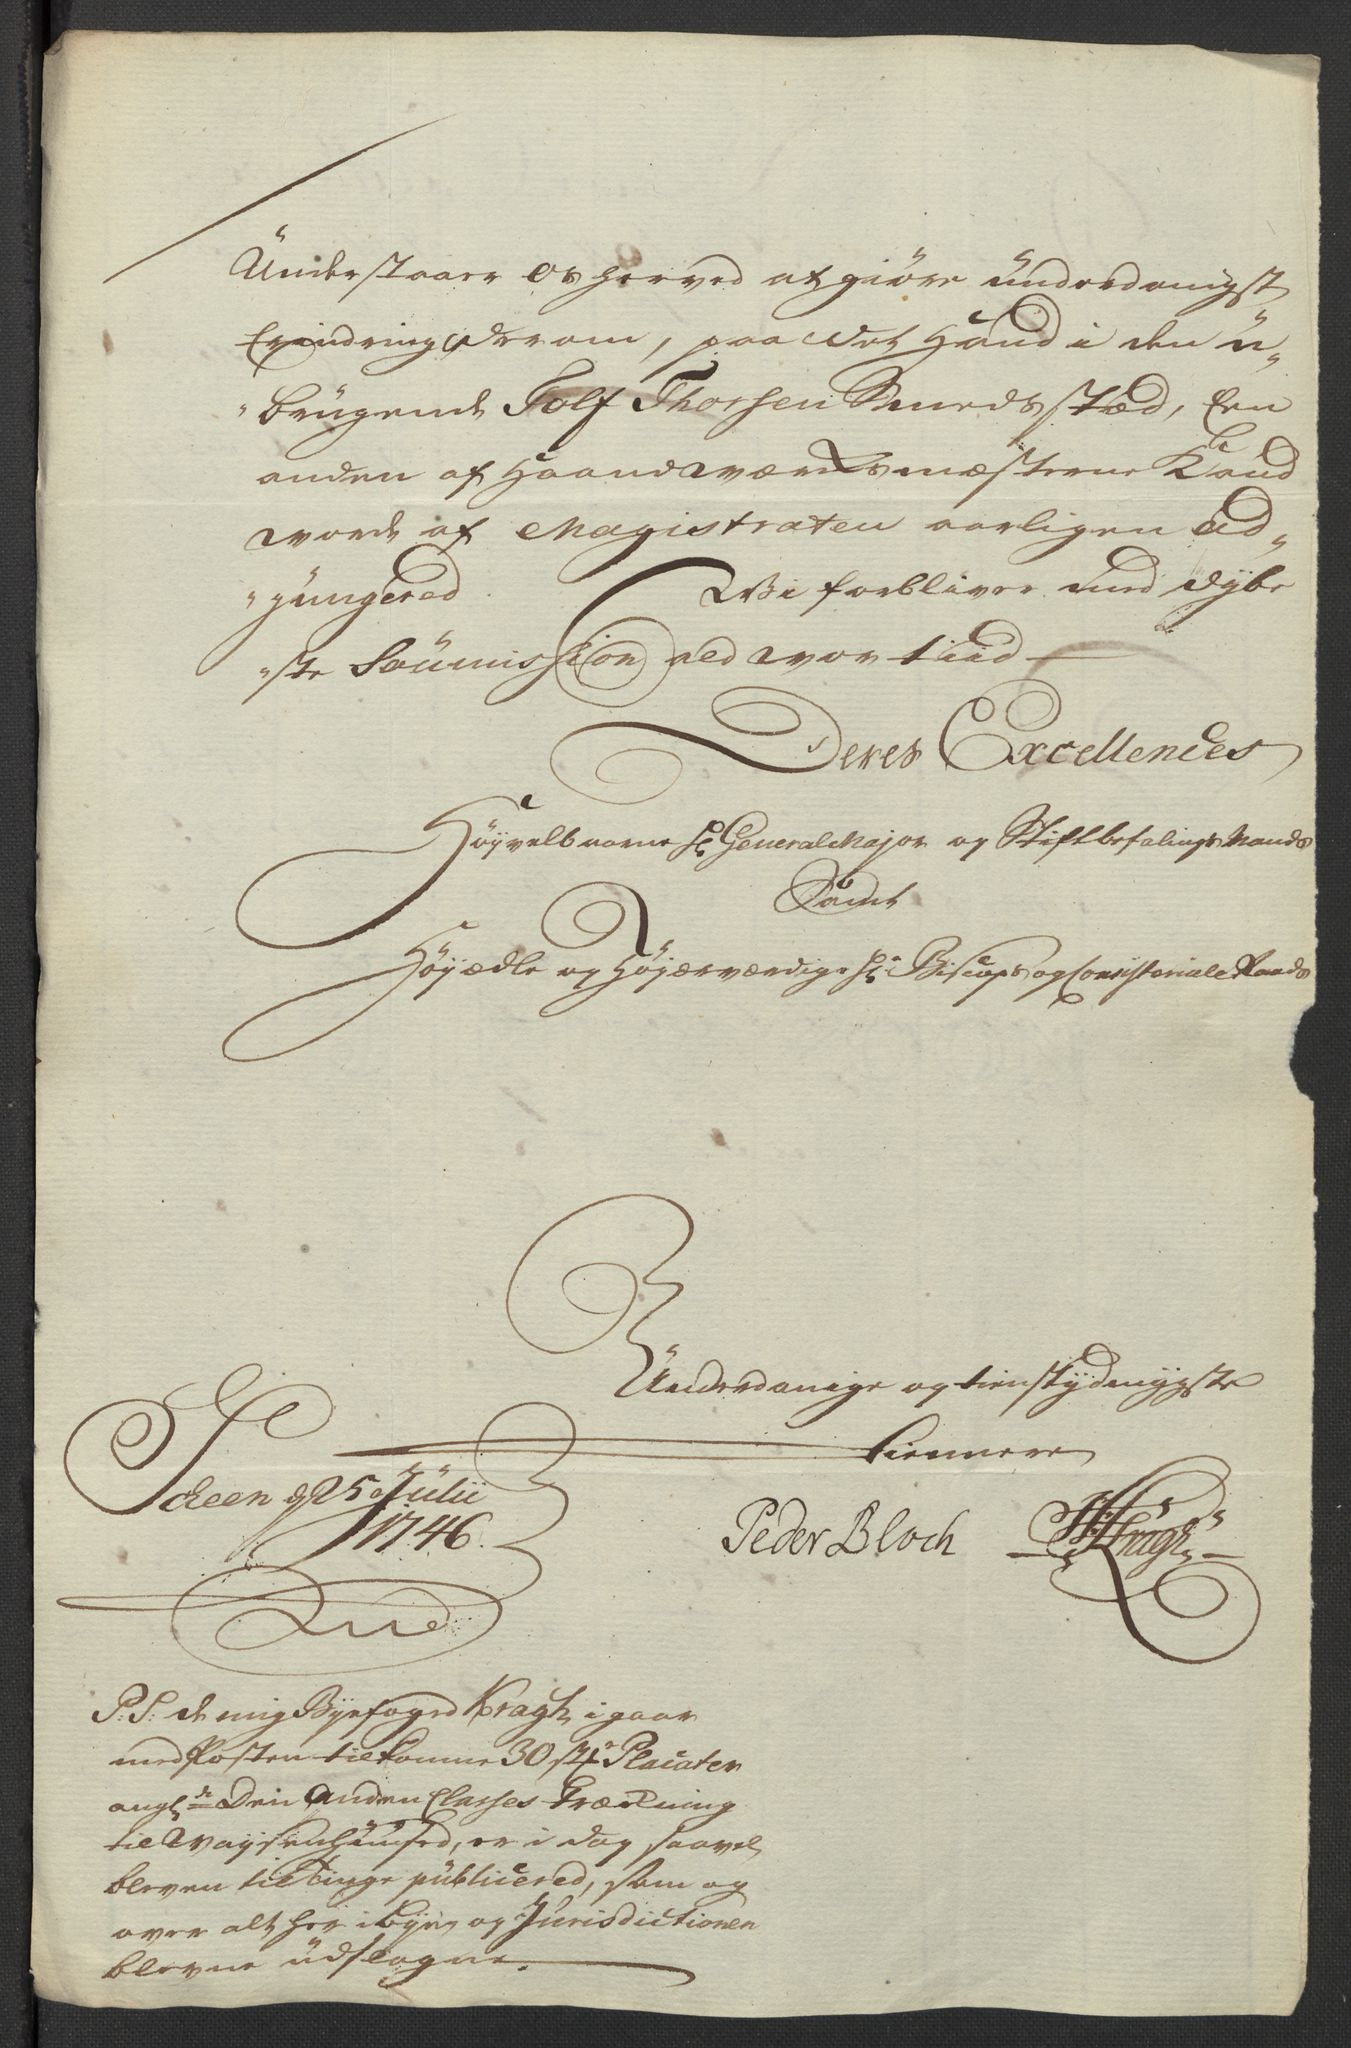 Understaaer os herved at giöre underdanigst
Erindring derom, paa det Hand i den u-
brugende Tolf Thorsen Smeds stæd, Een
anden af Haandværksmæsterne Kand
vorde af Magistraten aarligen ad-
jungered. Wi forbliver med dybe-
ste Soumission ald vor tiid
Deres Excellences
Höyvelbaarne Hr General Major og Stiftbefalings Mands
Samt
Höyædle og Höyærværdige Hr Biscops og Consistoriale Raads
Underdanige og tienstydmygste
tiennere
Scheen d 25 Julii
1746.
Peder Bloch Kragh
P: S: de mig Byefoged Kragh i gaar
med Posten tilkomne 30 st Placater
angl: Den Anden Classes Trækning
til Waysenhuused, er i dag saavel
bleven til Tinge publicered, som og
over alt her i Byen og Jurisdictionen
blevne udslagne.